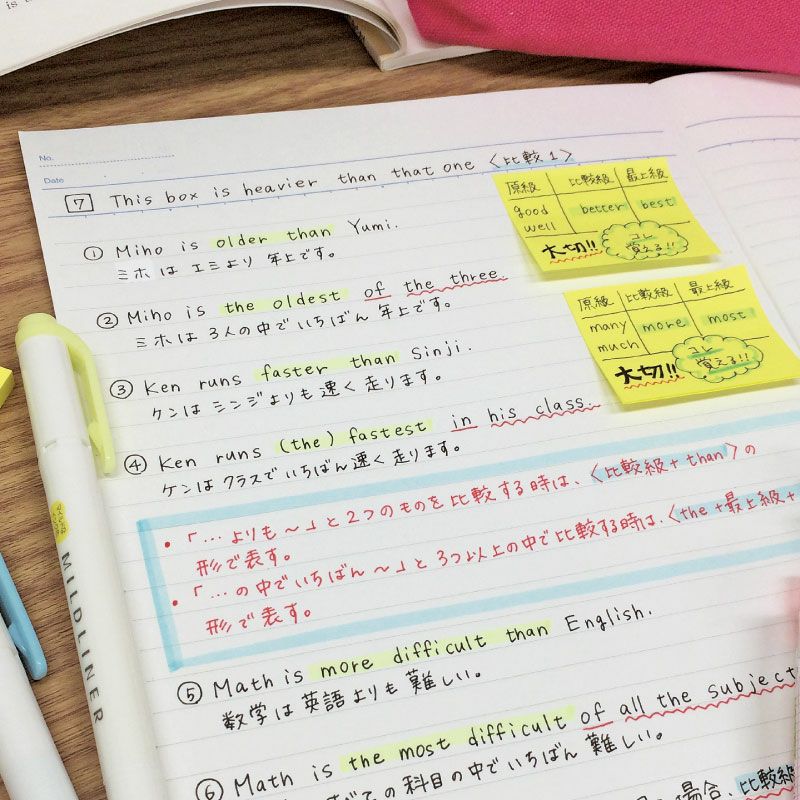 No.
Date
7 This box is heavier than that one 〈比較1〉
① Miho is older than Yumi.
ミホはエミより年上です。
② Miho is the oldest of the three.
ミホは3人の中でいちばん年上です。
③ Ken runs faster than Sinji.
ケンはシンジよりも速く走ります。
④ Ken runs (the) fastest in his class.
ケンはクラスでいちばん速く走ります。
・「…よりも～」と2つのものを比較する時は、〈比較級+than〉の
形で表す。
・「…の中でいちばん～」と3つ以上の中で比較する時は、〈the+最上級+
形で表す。
⑤ Math is more difficult than English.
数学は英語よりも難しい。
⑥ Math is the most difficult of all the subject
すべての科目の中でいちばん難しい。
場合、比較級
原級 比較級 最上級
good better best
well
大切!! コレ
覚える!!
原級 比較級 最上級
many more most
much
大切!! コレ
覚える!!
MILDLINER